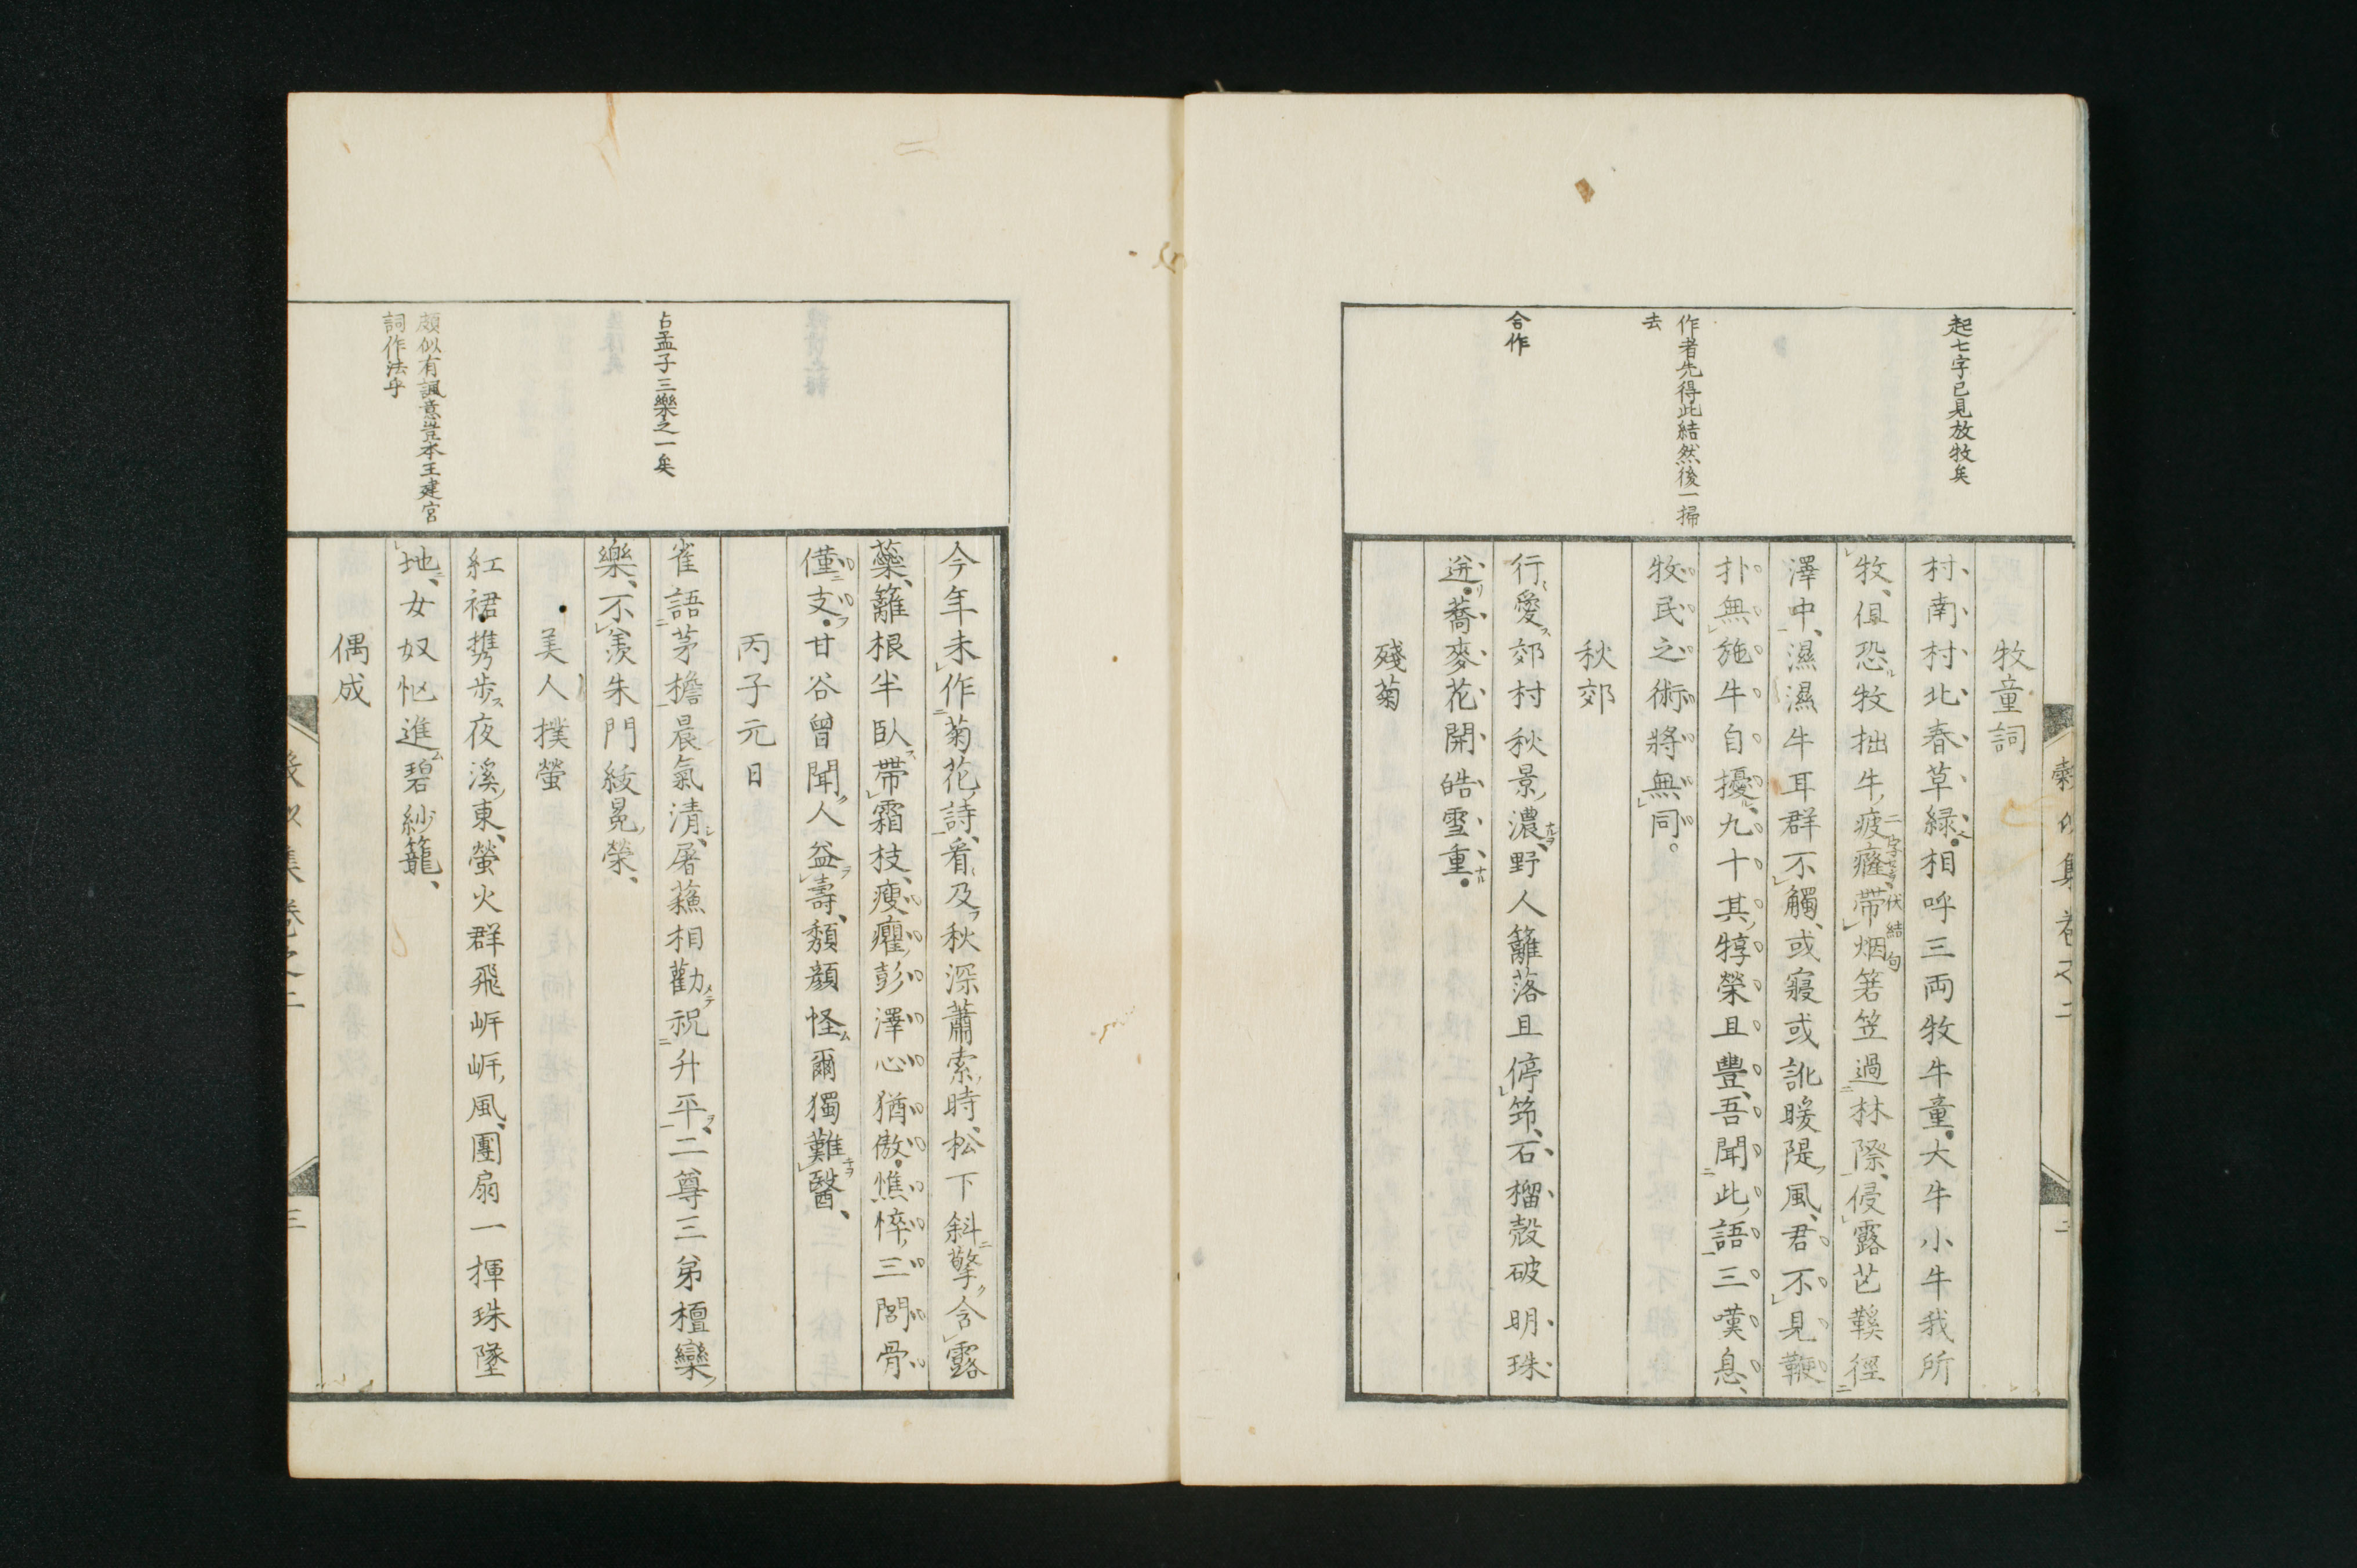 起七字已見放牧矣
作者先得此結然後一掃
去
合作
牧童詞
村南村北春草緑相呼三両牧牛童大牛小牛我所
牧俱恐牧拙牛疲癃帶烟箬笠過林際侵露芒鞵徑
二字伏結句
澤中濕濕牛耳群不觸或寢或訛暖隄風君不見鞭
扑無施牛自擾九十其犉榮且豊吾聞此語三嘆息
牧民之術將無同
秋郊
行愛郊村秋景濃野人籬落且停筇石榴殼破明珠
迸蕎麥花開皓雪重
殘菊
占孟子三樂之一矣
頗似有諷意豈本王建宮
詞作法乎
今年未作菊花詩看及秋深蕭索時松下斜擎含露
蘂籬根半臥帶霜枝瘦癯彭澤心猶傲憔悴三閭骨
僅支甘谷曾聞人益壽頽顏怪爾獨難醫
丙子元日
雀語茅檐晨氣清屠蘓相勸祝升平二尊三弟檀欒
樂不羨朱門紱冕榮
美人撲螢
紅裙携歩夜溪東螢火群飛岍岍風團扇一揮珠墜
地女奴忙進碧紗籠
偶成
集卷之二
三